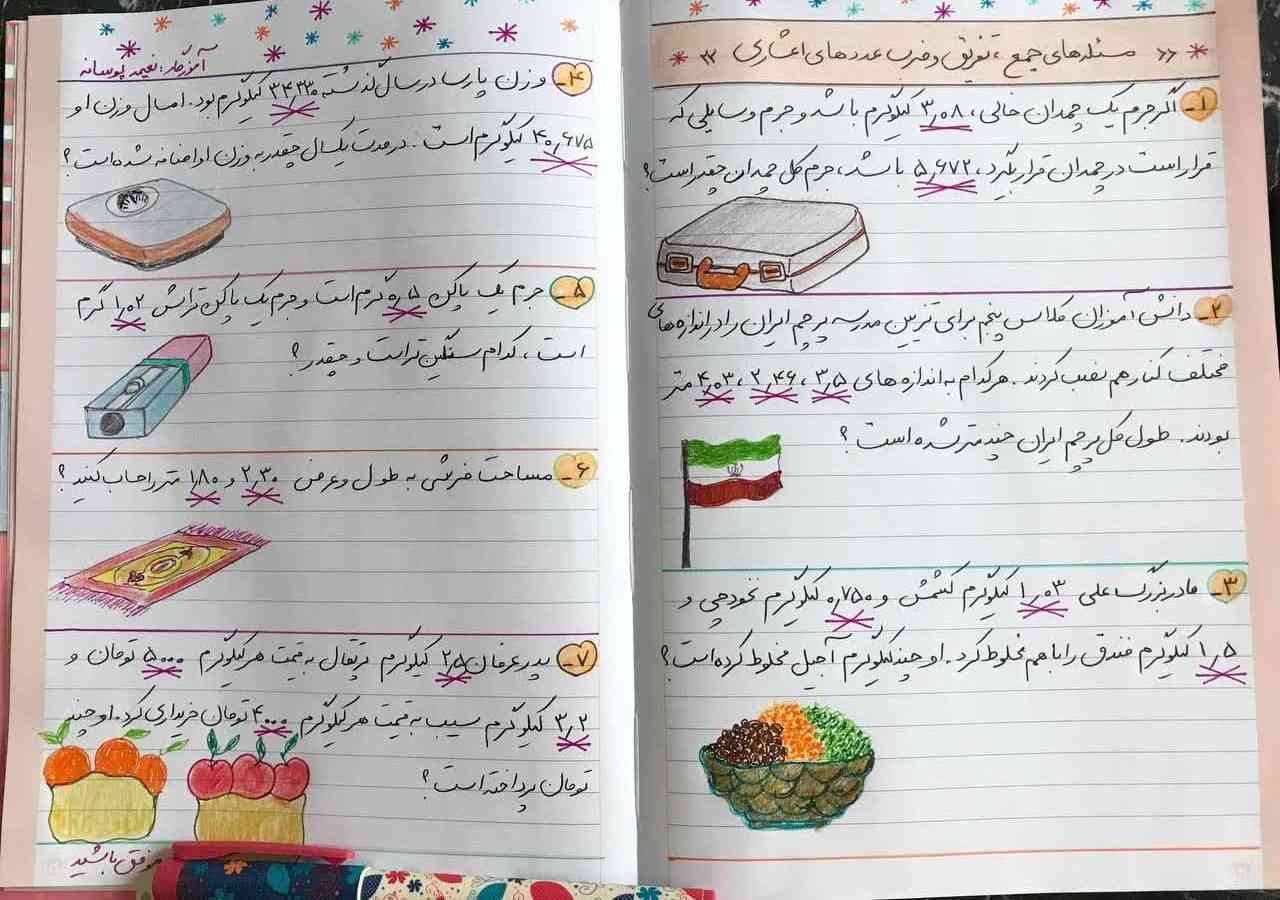 « مسئله‌های جمع ، تفریق و ضرب عددهای اعشاری »
۱_ اگر جرم یک چمدان خالی، ۳٫۰۸ کیلوگرم باشد و جرم وسایلی که
قرار است در چمدان قرار بگیرد، ۵٫۶۷۲ باشد، جرم کل چمدان چقدر است؟
۲_ دانش آموزان کلاس پنجم برای تزیین مدرسه پرچم ایران را در اندازه های
مختلف کنار هم نصب کردند. هر کدام به اندازه های ۳٫۵ ، ۲٫۴۶ ، ۴٫۰۳ متر
بودند. طول کل پرچم ایران چند متر شده است ؟
۳_ مادربزرگ علی ۱٫۰۳ کیلوگرم کشمش و ۰٫۷۵۰ کیلوگرم نخودچی و
۱٫۵ کیلوگرم فندق را با هم مخلوط کرد. او چند کیلوگرم آجیل مخلوط کرده است؟
آموزگار: نعیمه پوستانه
۴_ وزن پارسا در سال گذشته ۳۴٫۲۳۰ کیلوگرم بود. امسال وزن او
۴۰٫۶۷۵ کیلوگرم است. در مدت یکسال چقدر به وزن او اضافه شده است؟
۵_ جرم یک پاکن ۰٫۵ گرم است و جرم یک پاکن تراش ۱٫۰۲ گرم
است ، کدام سنگین تر است و چقدر؟
۶_ مساحت فرشی به طول و عرض ۲٫۳۰ و ۱٫۸۰ متر را حساب کنید؟
۷_ پدر عرفان ۲٫۵ کیلوگرم پرتقال به قیمت هر کیلوگرم ۵۰۰۰ تومان و
۳٫۲ کیلوگرم سیب به قیمت هر کیلوگرم ۴۰۰۰ تومان خریداری کرد. او چند
تومان پرداخته است؟
موفق باشید